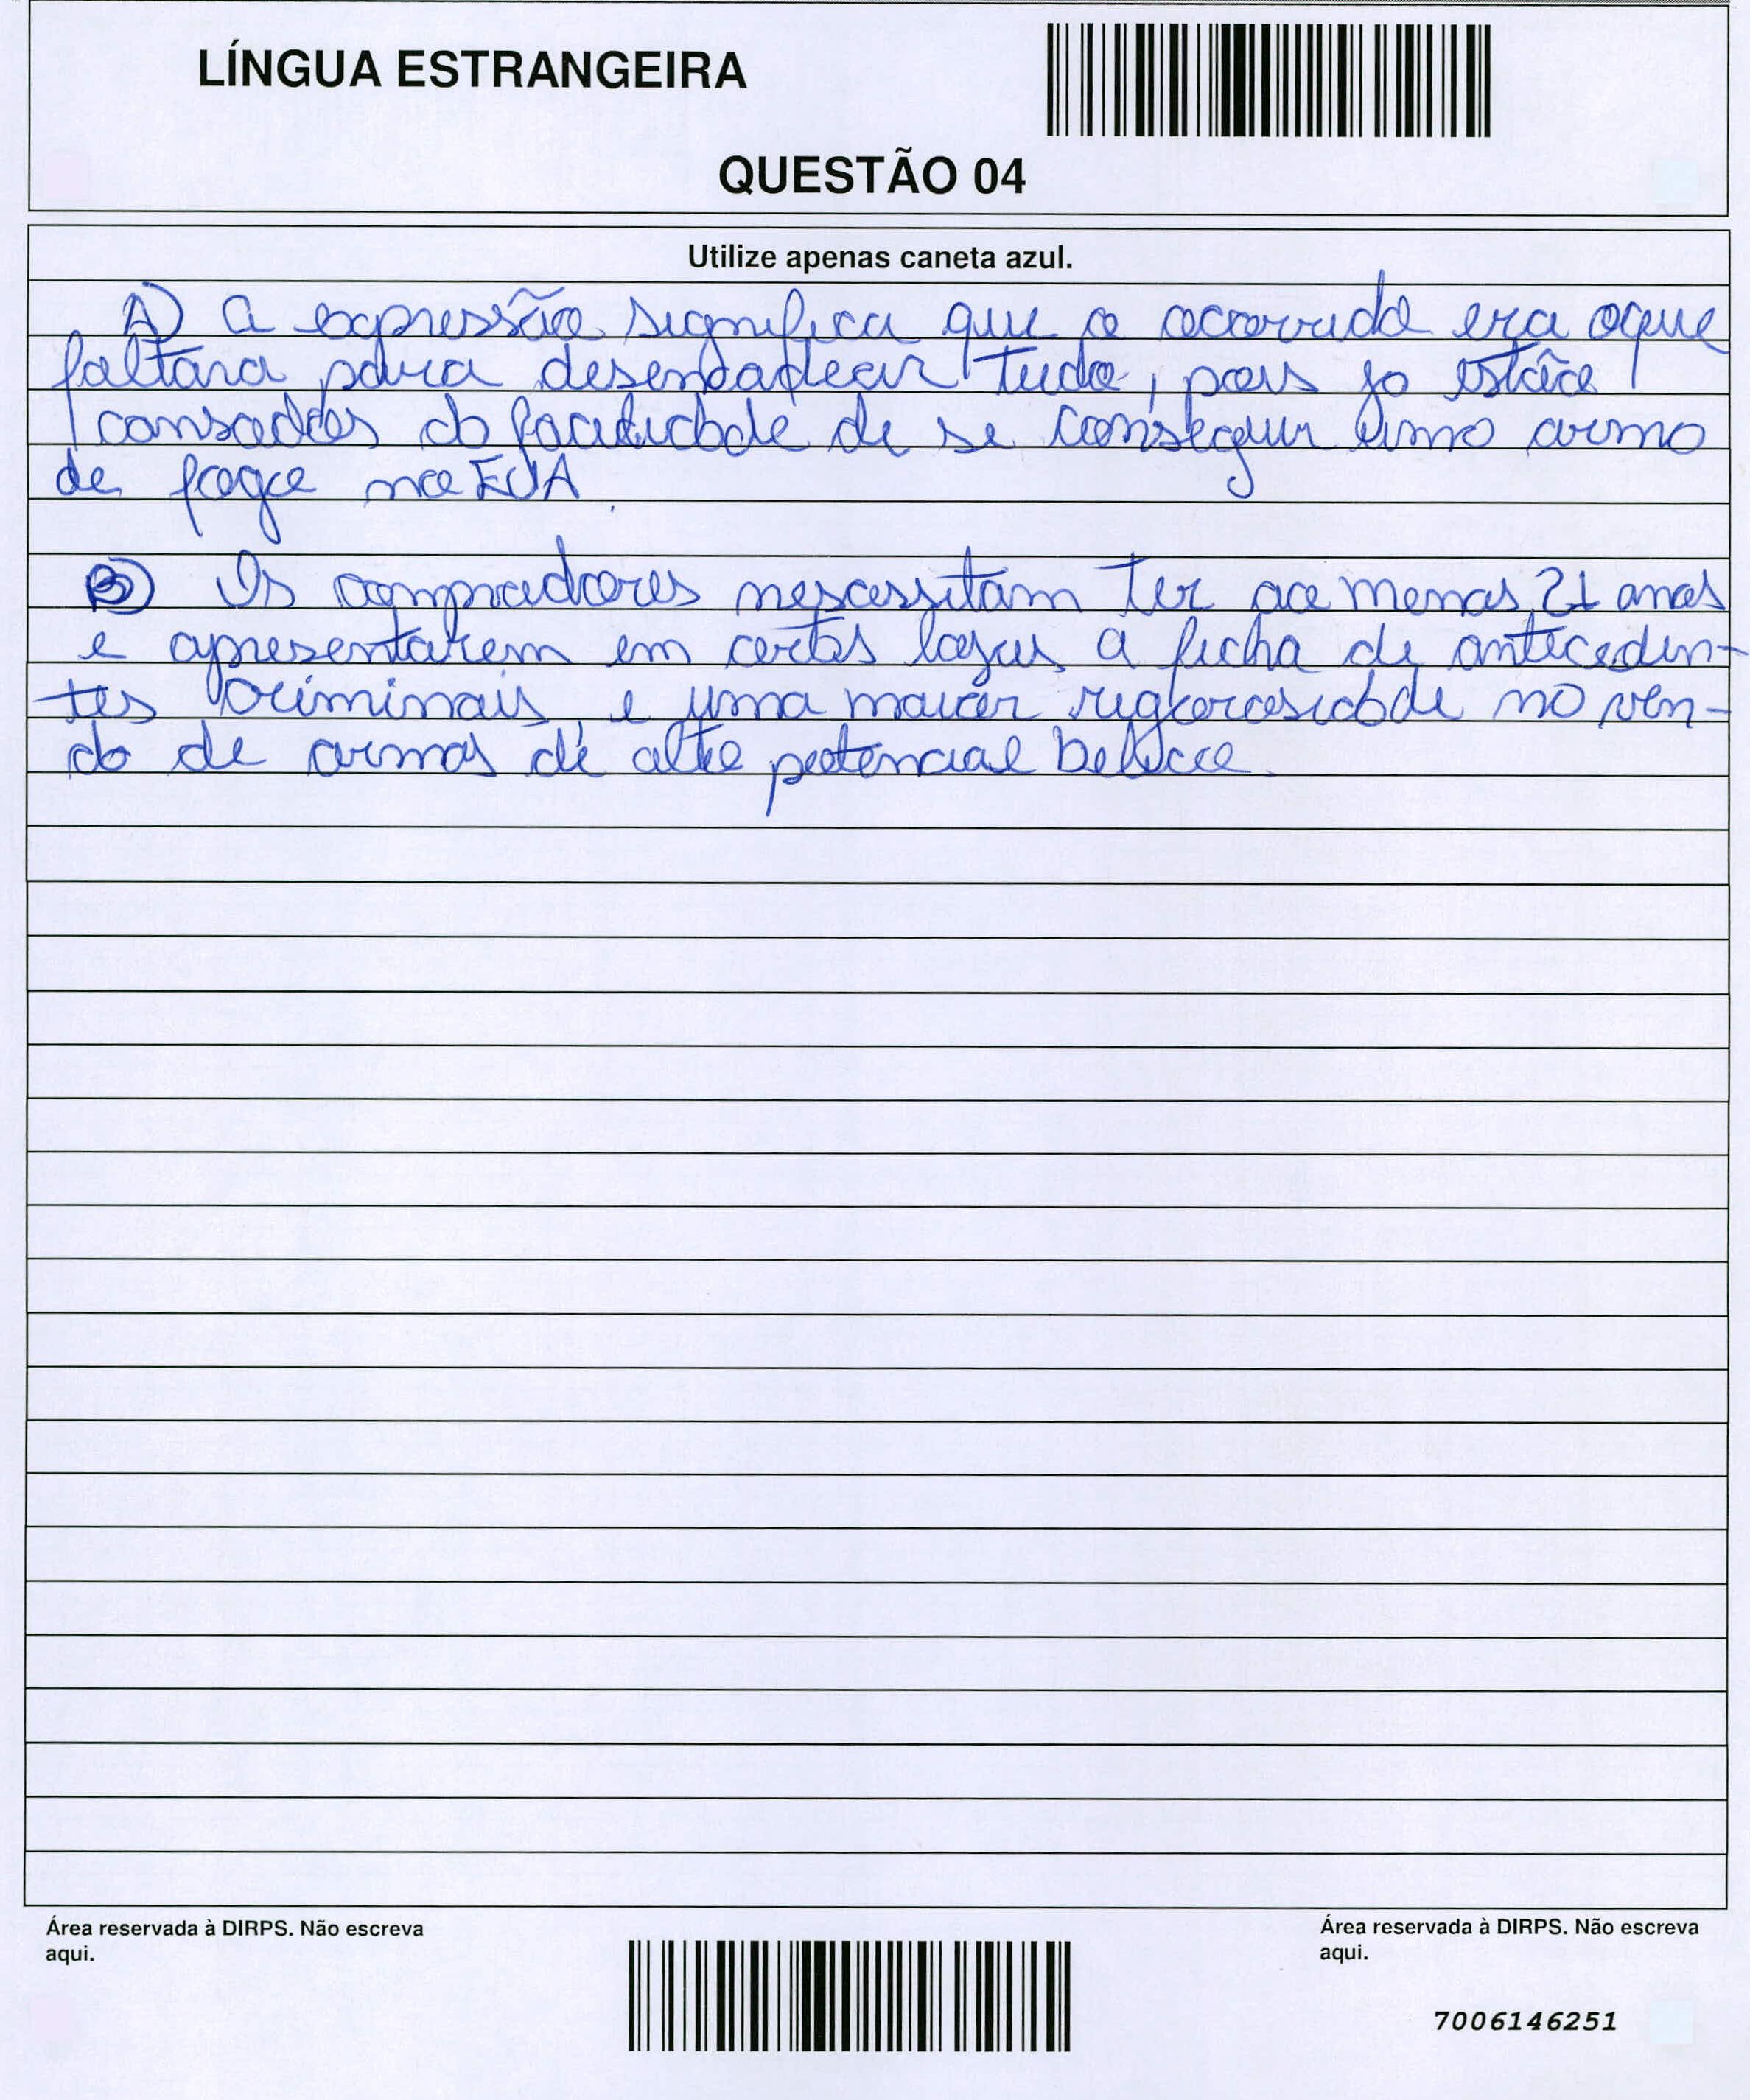 LÍNGUA ESTRANGEIRA
QUESTÃO 04
Utilize apenas caneta azul.
A) A expressão significa que o ocorrido era oque
faltara para desencadear tudo, pois já estão
cansados da facilidade de se conseguir uma arma
de fogo no EUA.
B) Os compradores nescessitam ter ao menos 21 anos
e apresentarem em certas lojas a ficha de anteceden-
tes criminais, e uma maior rigorosidade na ven-
da de armas de alto potencial belico.
Área reservada à DIRPS. Não escreva
aqui.
Área reservada à DIRPS. Não escreva
aqui.
7006146251